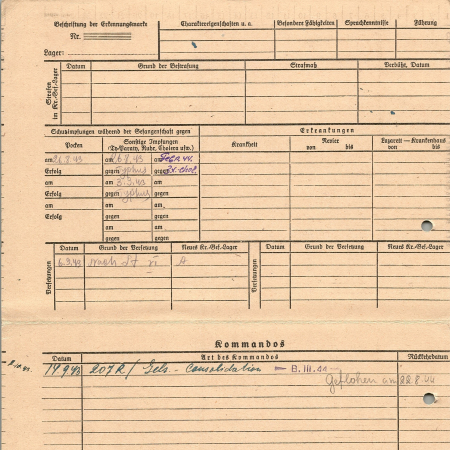 Beschriftung der Erkennungsmarke
Nr.
Lager:
Charaktereigenschaften u. a. Besondere Fähigkeiten Sprachkenntnisse Führung
Strafen im Kr.-Gef.-Lager
Datum Grund der Bestrafung Strafmaß Verbüßt, Datum
Schutzimpfungen während der Gefangenschaft gegen Erkrankungen
Pocken Sonstige Impfungen (Ty-Paraty, Ruhr, Cholera usw.) Krankheit Revier von bis Lazarett — Krankenhaus von bis
am 26.8.43 am 26.8.43 am
Erfolg gegen Typhus gegen
am am 3.9.43 am
Erfolg gegen Typhus gegen
am am am
Erfolg gegen gegen
am am
gegen gegen
Versetzungen
Datum Grund der Versetzung Neues Kr.-Gef.-Lager Datum Grund der Versetzung Neues Kr.-Gef.-Lager
6.9.43 nach St VI A
Versetzungen
Kommandos
Datum Art des Kommandos Rückkehrdatum
14 9 43 207 R / Gels. - Consolidation — 8. III. 44 —
Geflohen am 22.8.44